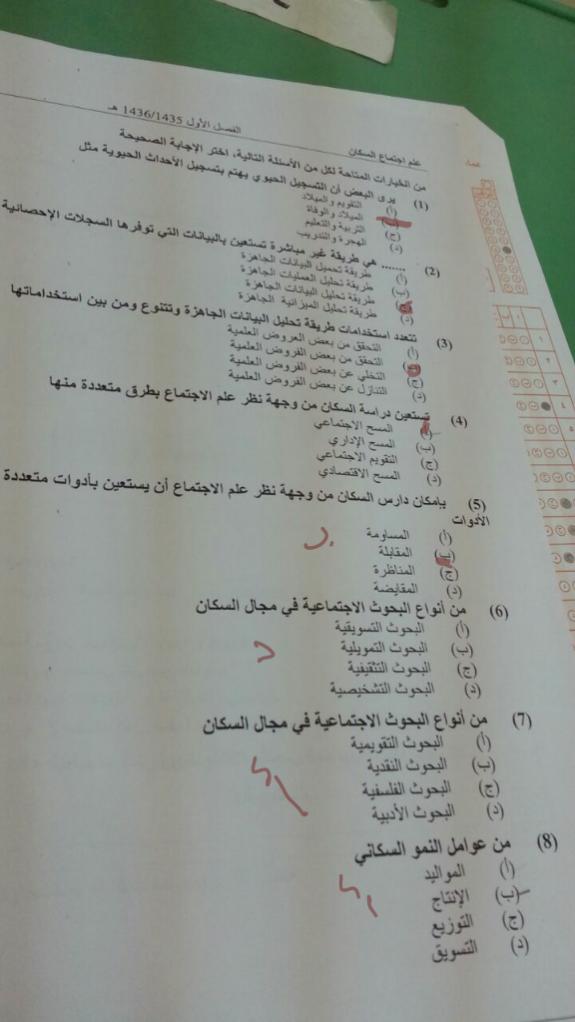 علم اجتماع السكان
الفصل الأول 1436/1435 هـ
من الخيارات المتاحة لكل من الأسئلة التالية، اختر الإجابة الصحيحة
(1) يرى البعض أن التسجيل الحيوي يهتم بتسجيل الأحداث الحيوية مثل
(أ) التقويم والميلاد
الميلاد والوفاة
(ج) التربية والتعليم
(د) الهجرة والتدريب
(2) ....... هي طريقة غير مباشرة تستعين بالبيانات التي توفرها السجلات الإحصائية
(أ) طريقة تحميل البيانات الجاهزة
(ب) طريقة تحليل العمليات الجاهزة
طريقة تحليل البيانات الجاهزة
(د) طريقة تحليل الميزانية الجاهزة
(3) تتعدد استخدامات طريقة تحليل البيانات الجاهزة وتتنوع ومن بين استخداماتها
(أ) التحقق من بعض العروض العلمية
التحقق من بعض الفروض العلمية
(ج) التخلي عن بعض الفروض العلمية
(د) التنازل عن بعض الفروض العلمية
(4) تستعين دراسة السكان من وجهة نظر علم الاجتماع بطرق متعددة منها
(أ) المسح الاجتماعي
(ب) المسح الإداري
(ج) التقويم الاجتماعي
(د) المسح الاقتصادي
(5) بإمكان دارس السكان من وجهة نظر علم الاجتماع أن يستعين بأدوات متعددة
الأدوات
(أ) المساومة
(ب) المقابلة
(ج) المناظرة
(د) المقايضة
(6) من أنواع البحوث الاجتماعية في مجال السكان
(أ) البحوث التسويقية
(ب) البحوث التمويلية
(ج) البحوث التثقيفية
(د) البحوث التشخيصية
(7) من أنواع البحوث الاجتماعية في مجال السكان
(أ) البحوث التقويمية
(ب) البحوث النقدية
(ج) البحوث الفلسفية
(د) البحوث الأدبية
(8) من عوامل النمو السكاني
(أ) المواليد
(ب) الإنتاج
(ج) التوزيع
(د) التسويق